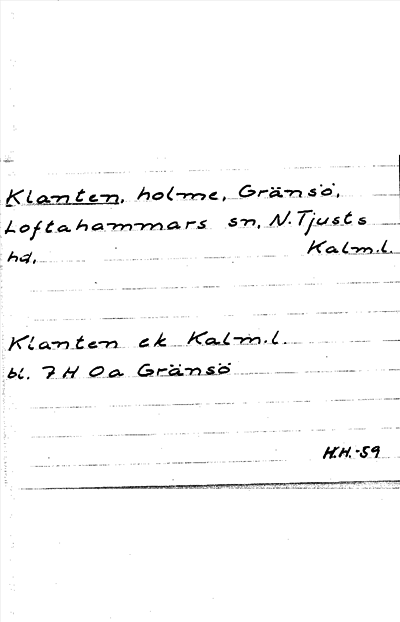 Klanten, holme, Gränsö,
Loftahammars sn, N. Tjusts
hd, Kalm.l.
Klanten ek Kalm.l.
bl. 7 H 0a Gränsö
H.H.-59